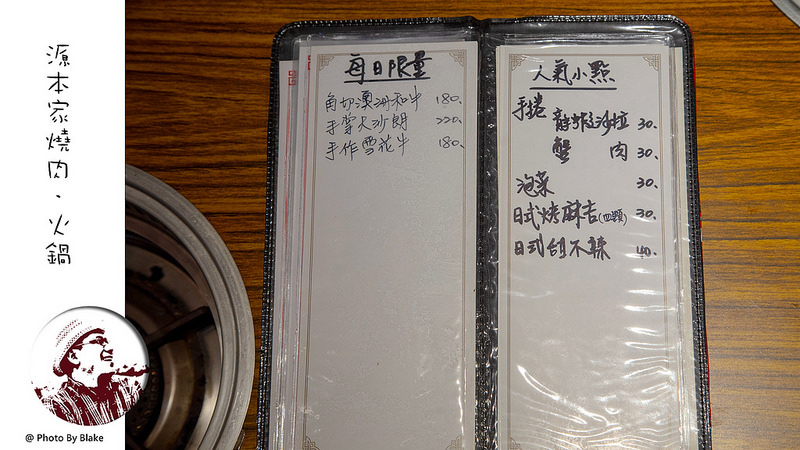 源本家燒肉·火鍋
每日限量
角切澳洲和牛 180.
手掌大沙朗 220.
手作雪花牛 180.
人氣小點
手捲 龍蝦沙拉 30.
蟹肉 30.
泡菜 30.
日式烤麻吉(四顆) 30.
日式甜不辣 40.
@ Photo By Blake